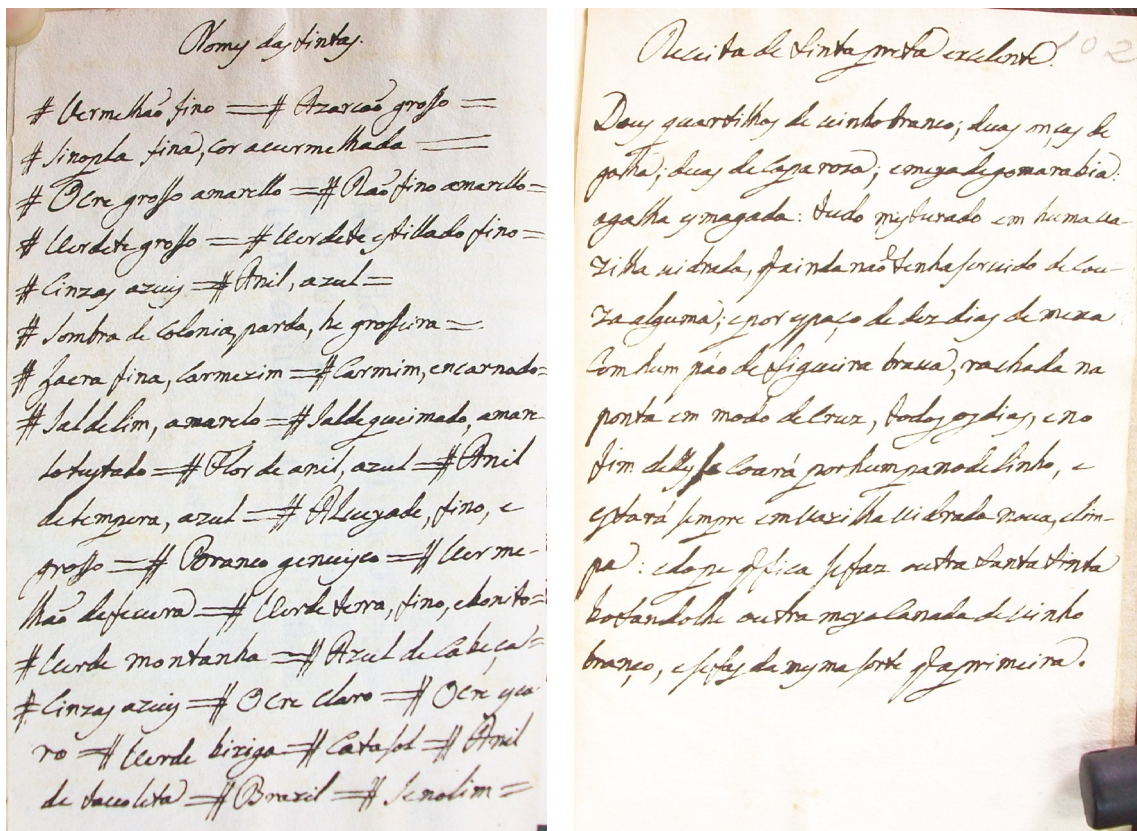 Nomes das tintas.
# Vermelhaõ fino = # Azarcaõ grosso =
# Sinopla fina, cor avermelhada =
# Ocre grosso amarello = # Raõ fino amarello =
# Verdete grosso = # Verdete estillado fino =
# Cinzas azuis = # Anil, azul =
# Sombra de Colonia, parda, he grosseira =
# Lacra fina, Carmezim = # Carmim, encarnado =
# Jaldelim, amarelo = # Jalde queimado, amare-
lo tustado = # Flor de anil, azul = # Anil
de tempera, azul = # Alvayade, fino, e
grosso = # Branco genuisco = # Verme-
lhaõ de = # Verde terra, fino, e bonito =
# Verde montanha = # Azul de Cabeça =
# Cinzas azuis = # Ocre claro = # Ocre
ro = # Verde bixiga = # Catasol = # Anil
de = # Brazil = # Jenolim =
Receita de tinta preta excelente.
102
Dous quartilhos de vinho branco; duas onças de
galha; duas de Caparosa; e meya de gomarabia:
a galha esmagada: tudo misturado em huma va-
zilha vidrada, q ainda naõ tenha servido de Cou-
za alguma; e por espaço de dez dias se mexa
Com hum páo de figueira brava, rachada na
ponta em modo de Cruz, todos os dias, e no
fim delles se Coará por hum pano de linho, e
estará sempre em vazilha vidrada nova, e lim-
pa: e do pe q fica se faz outra tanta tinta
botandolhe outra meya Canada de vinho
branco, e se fas da mesma sorte q a primeira.